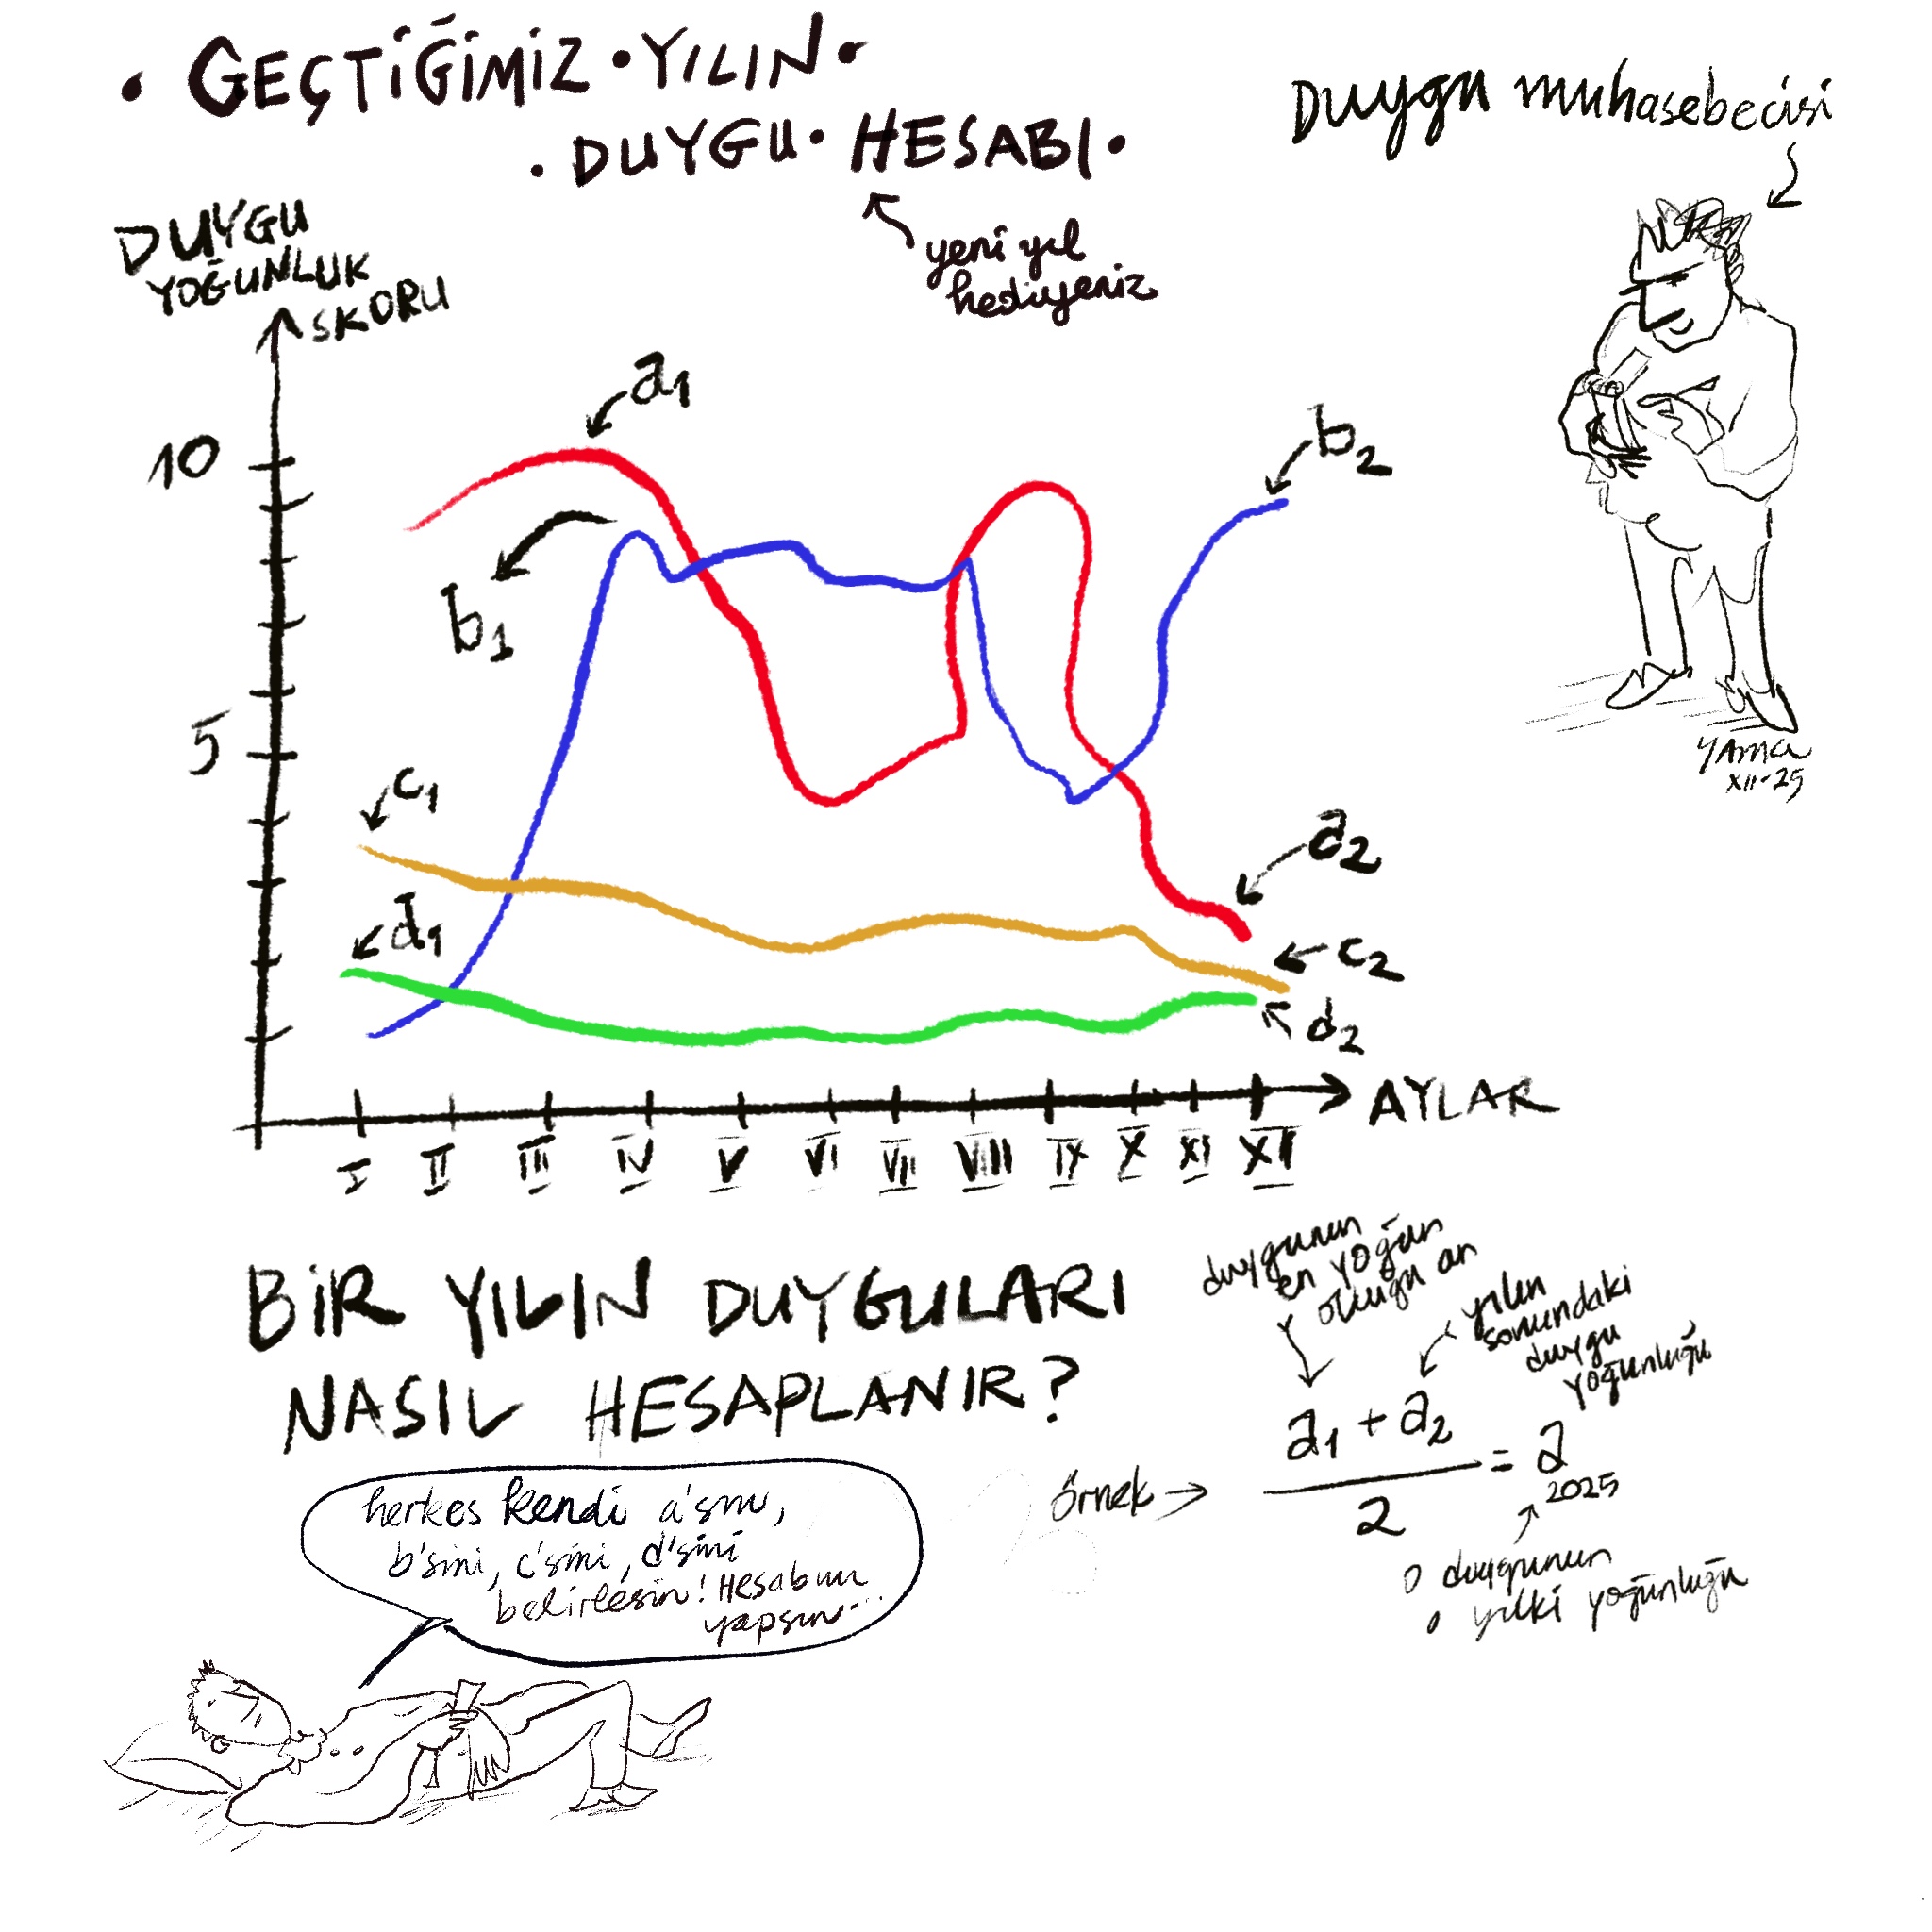 • GEÇTİĞİMİZ • YILIN •
• DUYGU • HESABI •
yeni yıl
hediyeniz
Duygu muhasebecisi
DUYGU
YOĞUNLUK
SKORU
10
5
a1
b1
b2
c1
a2
d1
c2
d2
I II III IV V VI VII VIII IX X XI XII
AYLAR
YAMA
XII-25
BİR YILIN DUYGULARI
NASIL HESAPLANIR?
duygunun
en yoğun
olduğu an
yılın
sonundaki
duygu
yoğunluğu
örnek →
a1 + a2
2
= a
2025
o duygunun
o yılki yoğunluğu
herkes kendi a'sını,
b'sini, c'sini, d'sini
belirlesin! Hesabını
yapsın...